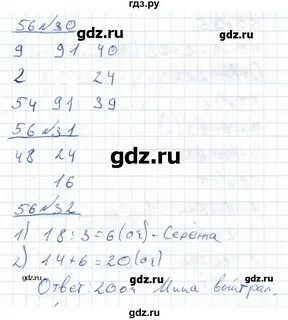 гдз.ру
56 №30
9 91 40
2 24
54 91 39
56 №31
48 24
16
56 №32
1) 18 : 3 = 6 (оч) - Серёжа
2) 14 + 6 = 20 (оч)
Ответ: 20 оч Миша выйграл.
gdz.ru gdz.ru
gdz.ru gdz.ru
gdz.ru gdz.ru